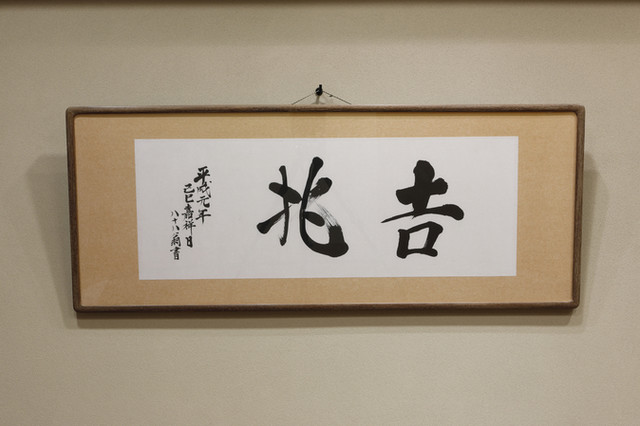 吉兆
平成元年
己巳嘉祥日
八十八翁書